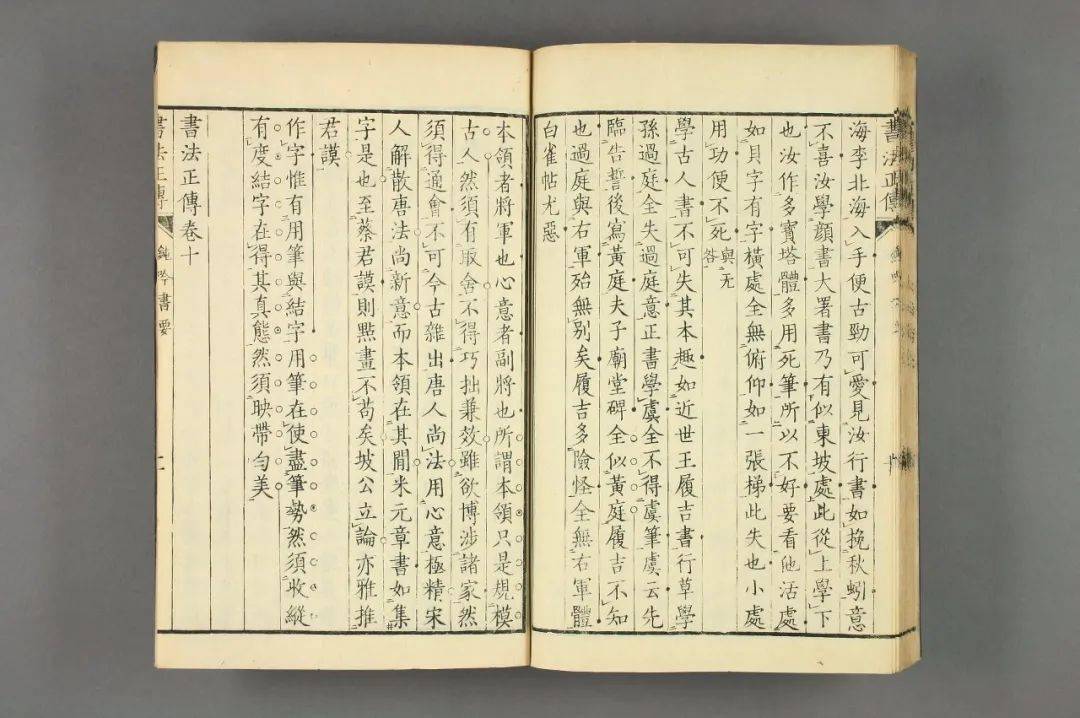 海李北海入手便古勁可愛見汝行書如挽秋蚓意
不喜汝學顔書大署書乃有似東坡處此從上學下
也汝作多寶塔體多用死筆所以不好要看他活處
如貝字有字橫處全無俯仰如一張梯此失也小處
用功便不死與无咎
學古人書不可失其本趣如近世王履吉書行草學
孫過庭全失過庭意正書學虞全不得虞筆虞云先
臨告誓後寫黃庭夫子廟堂碑全似黃庭履吉不知
也過庭與右軍殆無別矣履吉多險怪全無右軍體
白雀帖尤惡
本領者將軍也心意者副將也所謂本領只是規模
古人然須有取舍不得巧拙兼效雖欲博涉諸家然
須得通會不可今古雜出唐人尚法用心意極精宋
人解散唐法尚新意而本領在其閒米元章書如集
字是也至蔡君謨則點畫不苟矣坡公立論亦雅推
君謨
作字惟有用筆與結字用筆在使盡筆勢然須收縱
有度結字在得其真態然須映帶勻美
書法正傳卷十
書法正傳
鈍吟書要